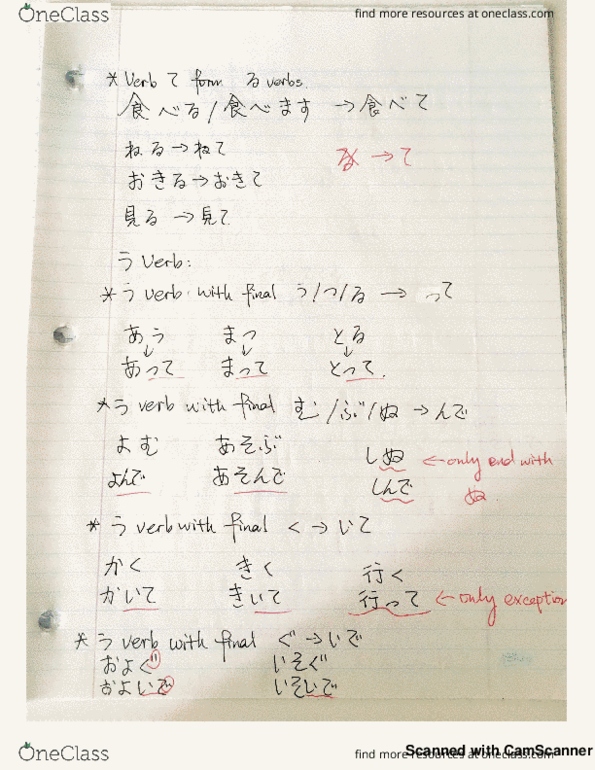 OneClass
find more resources at oneclass.com
* Verb て form る verbs.
食べる/食べます → 食べて
ねる→ねて
る → て
おきる→おきて
見る → 見て
う Verb:
* う verb with final う/つ/る → って
あう まつ とる
↓ ↓ ↓
あって まって とって.
* う verb with final む/ぶ/ぬ → んで
よむ あそぶ しぬ ← only end with ぬ.
よんで あそんで しんで
* う verb with final く → いて
かく きく 行く
かいて きいて 行って ← only exception
* う verb with final ぐ → いで
およぐ いそぐ
およいで いそいで
OneClass
find more resources at oneclass.com
Scanned with CamScanner